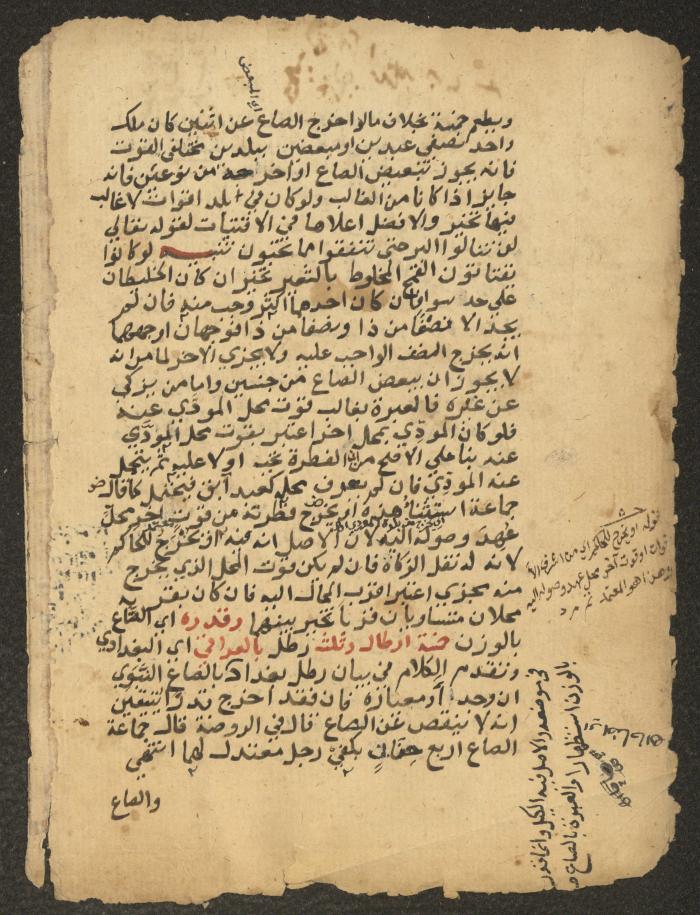 ويطعم خمسة بخلاف ما لو اخرج الصاع عن اثنين كان ملك
واحد نصفي عبدين او مبعضين ببلدين مختلفي القوت
فانه يجوز تبعيض الصاع او اخرجه من نوعين فانه
جايز اذا كانا من الغالب ولو كان في بلد اقوات لا غالب
فيها تخير والافضل اعلاها في الاقتيات لقوله تعالى
لن تنالوا البر حتى تنفقوا مما تحبون تنبيه لو كانوا
يقتاتون القمح المخلوط بالشعير تخير ان كان الخليطان
على حد سوا فان كان احدهما اكثر وجب منه فان لم
يجد الا نصفا من ذا ونصفا من ذا فوجهان اوجههما
انه يخرج النصف الواجب عليه ولا يجزي الاخر لما مر انه
لا يجوز ان يبعض الصاع من جنسين واما من يزكي
عن غيره فالعبرة بغالب قوت محل المودي عنه
فلو كان المودي بمحل اخر اعتبر بقوت محل المودي
عنه بنا على الاصح من ان الفطرة تجب اولا عليه ثم يتحمل
عنه المودي فان لم يعرف محله كعبد ابق فيحتمل كما قال
جماعة استثناء هذه او يخرج فطرته من قوت اخر محل
عهد وصوله اليه لان الاصل انه فيه او يخرج للحاكم
لانه له نقل الزكاة فان لم يكن قوت المحل الذي يخرج
منه يجزي اعتبر اقرب المحال اليه فان كان بقربه
محلان متساويان قربا تخير بينهما وقدره اي الصاع
بالوزن خمسة ارطال وثلث رطل بالعراقي اي البغدادي
وتقدم الكلام في بيان رطل بغداد بالصاع النبوي
ان وجد او معياره فان فقد اخرج قدرا يتيقن
انه لا ينقص عن الصاع قال في الروضة قال جماعة
الصاع اربع حفنات بكفي رجل معتدلهما انتهى
والصاع
او المبعض
قوله او يخرج للحاكم اي من اشرف الا
قوات او قوت آخر محل عهد وصوله اليه
وهذا هو المعتمد
بالوزن استظهارا والعبرة بالصاع